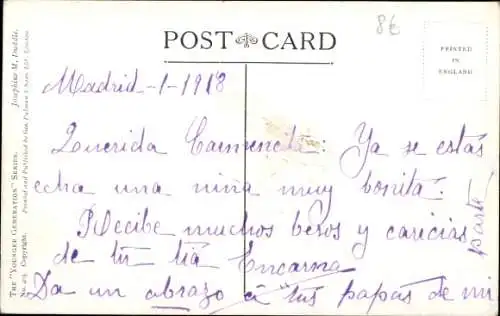 8€
POST CARD
PRINTED
IN
ENGLAND
Madrid-1-1918
Querida Carmencita: Ya se estás
echa una niña muy bonita.
Recibe muchos besos y caricias
de tu tía Encarna
Da un abrazo a tus papas de mi
parte
THE "YOUNGER GENERATION" SERIES. Josephine M. Duddle.
Copyright. Printed and Published by Geo. Pulman & Sons, Ltd., London